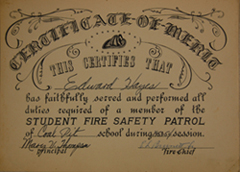 CERTIFICATE-OF-MERIT
THIS CERTIFIES THAT
Edward Hayes
has faithfully served and performed all
duties required of a member of the
STUDENT FIRE SAFETY PATROL
of Coal Pit school during session.
Principal Fire Chief